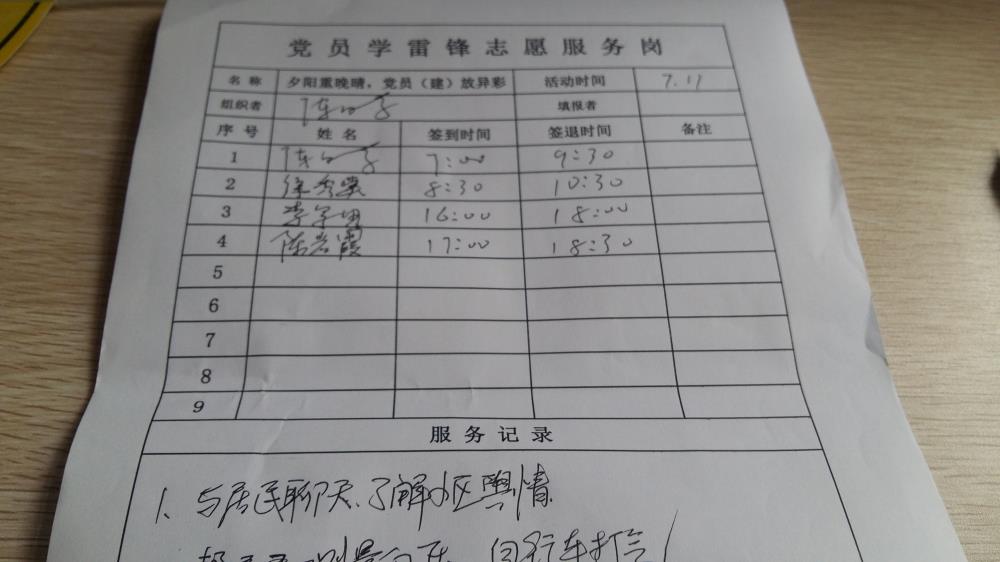 党员学雷锋志愿服务岗
名称 夕阳重晚晴，党员（建）放异彩 活动时间 7.17
组织者 填报者
序号 姓名 签到时间 签退时间 备注
1 7:00 9:30
2 8:30 10:30
3 16:00 18:00
4 陈岩霞 17:00 18:30
5
6
7
8
9
服务记录
1、与居民聊天、了解小区舆情
自行车打气